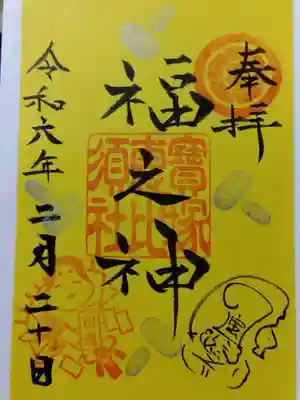 奉拝
福之神
寶塚
恵比
須社
令和六年二月二十日